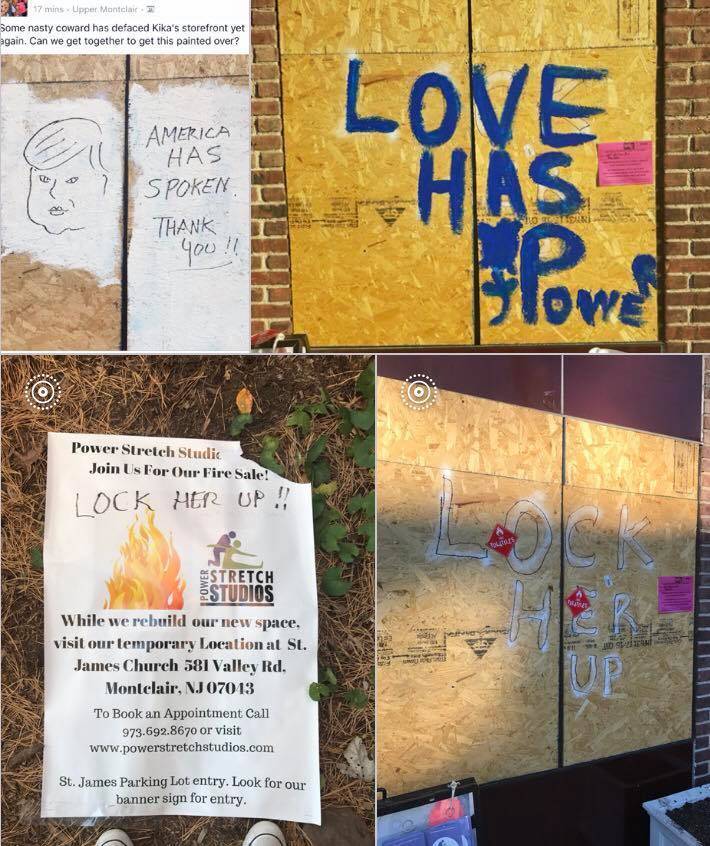 17 mins · Upper Montclair ·
Some nasty coward has defaced Kika's storefront yet
again. Can we get together to get this painted over?
AMERICA
HAS
SPOKEN.
THANK
YOU !!
LOVE
HAS
POWER
Power Stretch Studio
Join Us For Our Fire Sale!
LOCK HER UP !!
POWER
STRETCH
STUDIOS
While we rebuild our new space,
visit our temporary Location at St.
James Church 581 Valley Rd,
Montclair, NJ 07043
To Book an Appointment Call
973.692.8670 or visit
www.powerstretchstudios.com
St. James Parking Lot entry. Look for our
banner sign for entry.
LOCK
HER
UP